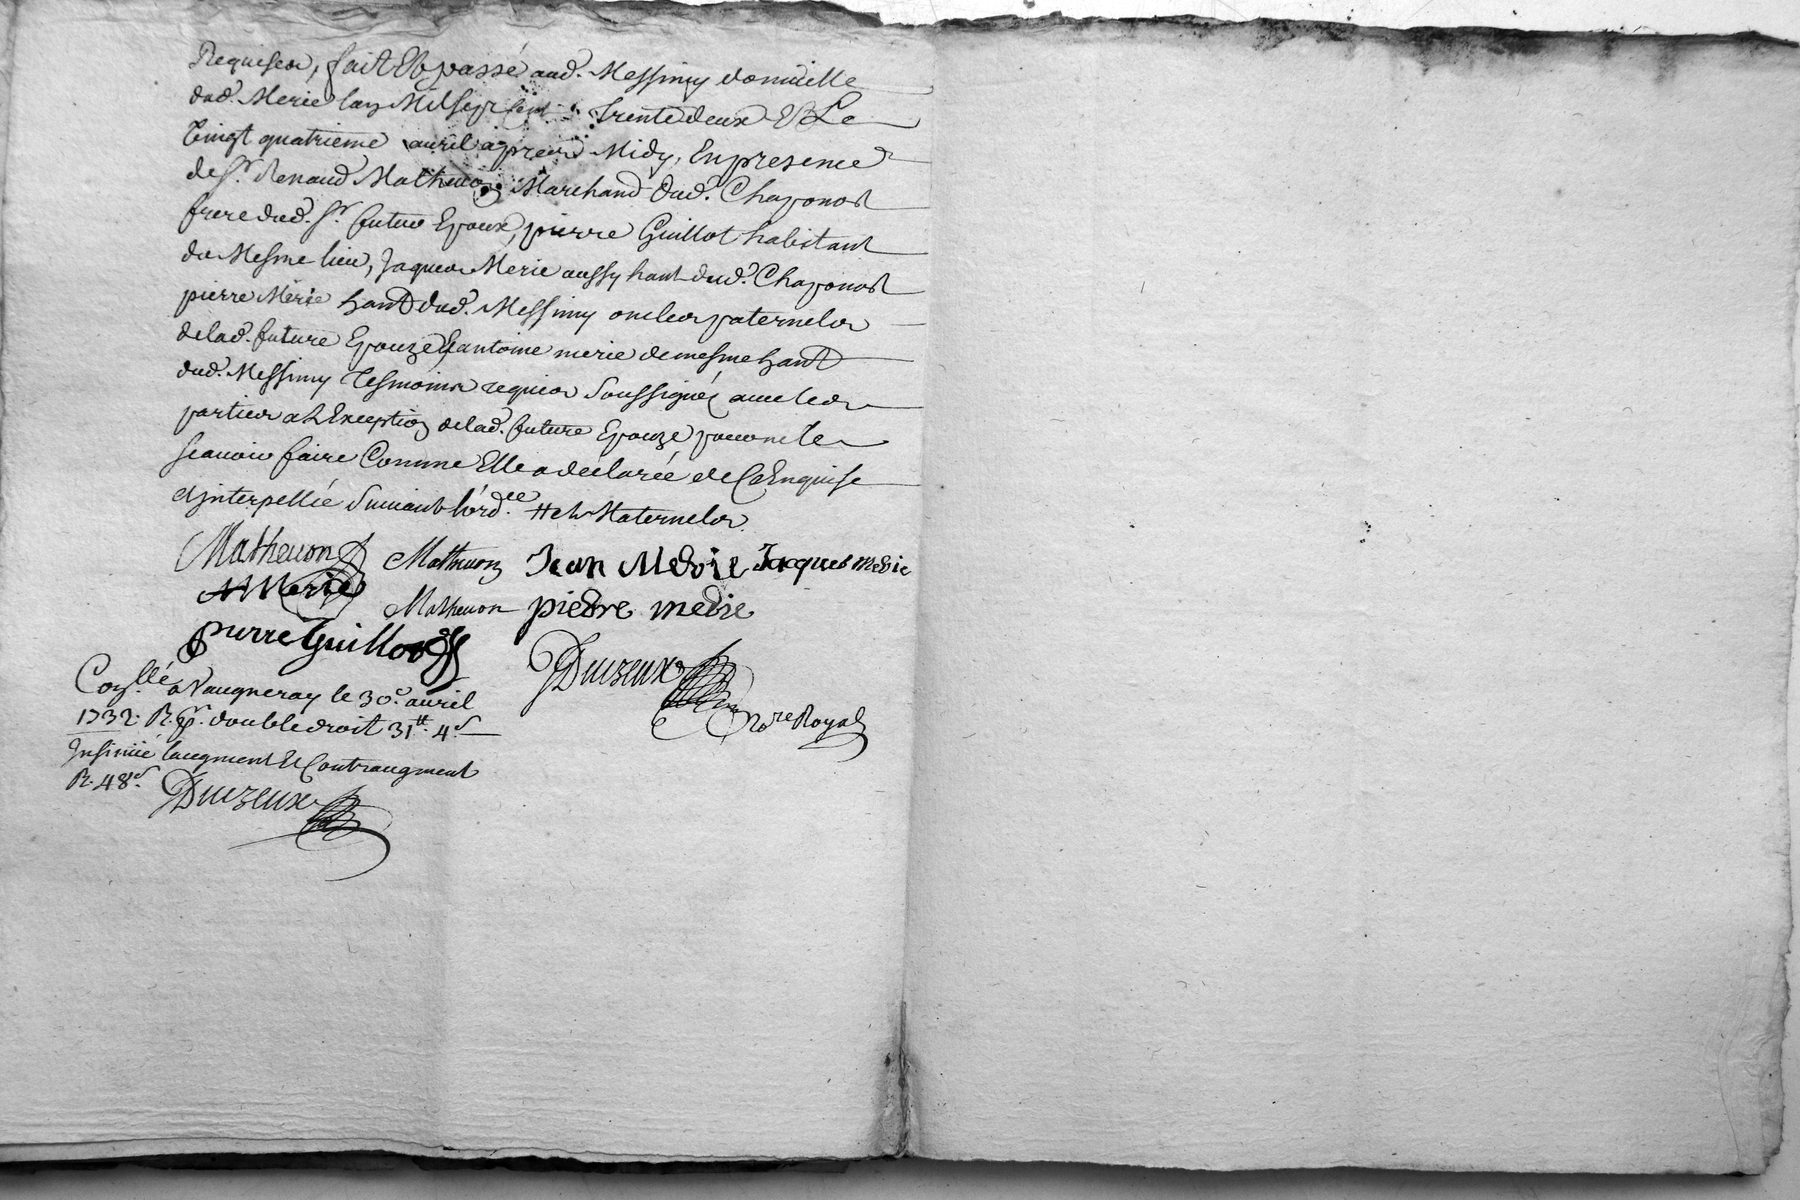 Requises, fait Et passé aud. Messimy domicille
dud. Merie lan Mil sept Cent Trente deux Et Le
Vingt quatrieme avril apres Midy, En presence
de Sr. Renaud Matheuon Marchand dud. Chaponost
frere dud. Sr. futur Epoux, pierre Guillot habitant
du Mesme lieu, Jaques Merie aussy hant dud. Chaponost
pierre Merie hant dud. Messimy oncles paternels
de lad. future Epouze Et antoine merie de mesme hant
dud. Messimy Tesmoins requis Soussignés auec les
parties a L'Exception de lad. future Epouze pour ne le
scauoir faire Comme Elle a declarée de Ce Enquise
et interpellée Suiuant lord.ce # et Maternels
Matheuon Matheuon Jean Merie Jacques merie
A Merie Matheuon pierre merie
pierre Guillot
Duizeux
No.re Royal
Con.llé a Vaugneray le 30e. auril
1732. R. pr. double droit 31tt. 4s
Insinué laugment Et Contraugment
R. 48s.
Duizeux